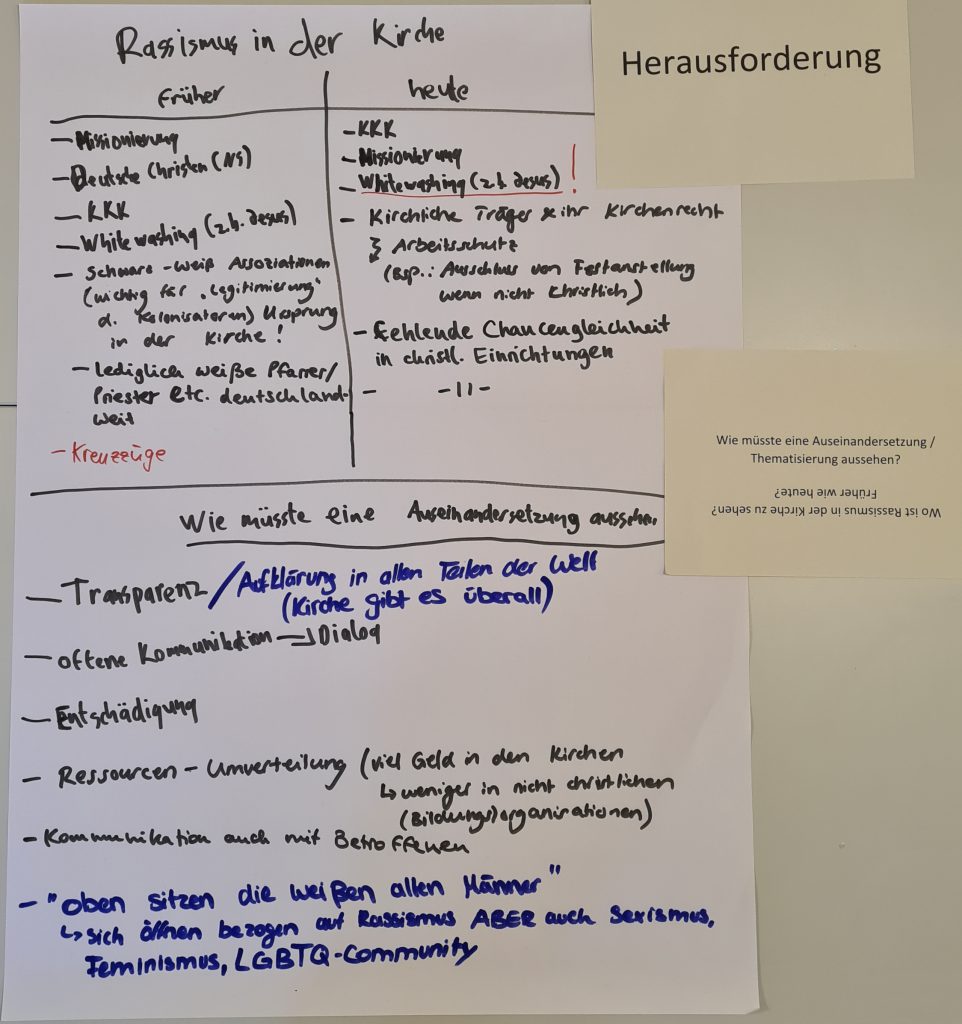 Rassismus in der Kirche
Früher
- Missionierung
- Deutsche Christen (NS)
- KKK
- White washing (z.b. Jesus)
- Schwarz-weiß Assoziationen
(wichtig für "Legitimierung"
d. Kolonisatoren) Ursprung
in der Kirche!
- Lediglich weiße Pfarrer/
Priester etc. deutschland-
weit
- Kreuzzüge
heute
- KKK
- Missionierung
- Whitewashing (z.b. Jesus) !
- Kirchliche Träger & ihr Kirchenrecht
Arbeitsschutz
(Bsp.: Ausschluss von Festanstellung
wenn nicht Christlich)
- fehlende Chancengleichheit
in christl. Einrichtungen
- -11-
Herausforderung
Wie müsste eine Auseinandersetzung /
Thematisierung aussehen?
Wo ist Rassismus in der Kirche zu sehen?
Früher wie heute?
Wie müsste eine Auseinandersetzung aussehen
- Transparenz / Aufklärung in allen Teilen der Welt
(Kirche gibt es überall)
- offene Kommunikation → Dialog
- Entschädigung
- Ressourcen - Umverteilung (viel Geld in den Kirchen
↳ weniger in nicht christlichen
(Bildungs)organisationen)
- Kommunikation auch mit Betroffenen
- "oben sitzen die weißen alten Männer"
↳ sich öffnen bezogen auf Rassismus ABER auch Sexismus,
Feminismus, LGBTQ-Community